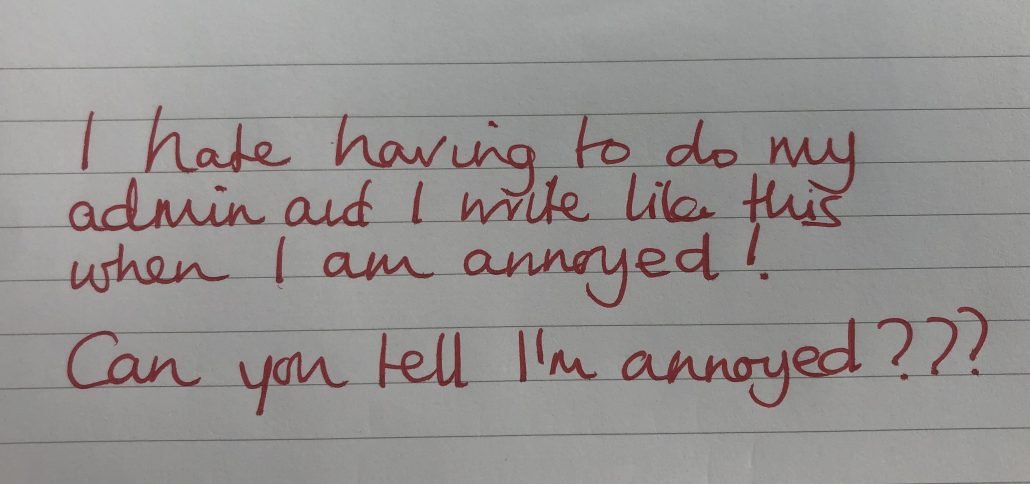 I hate having to do my
admin and I write like this
when I am annoyed!
Can you tell I'm annoyed???